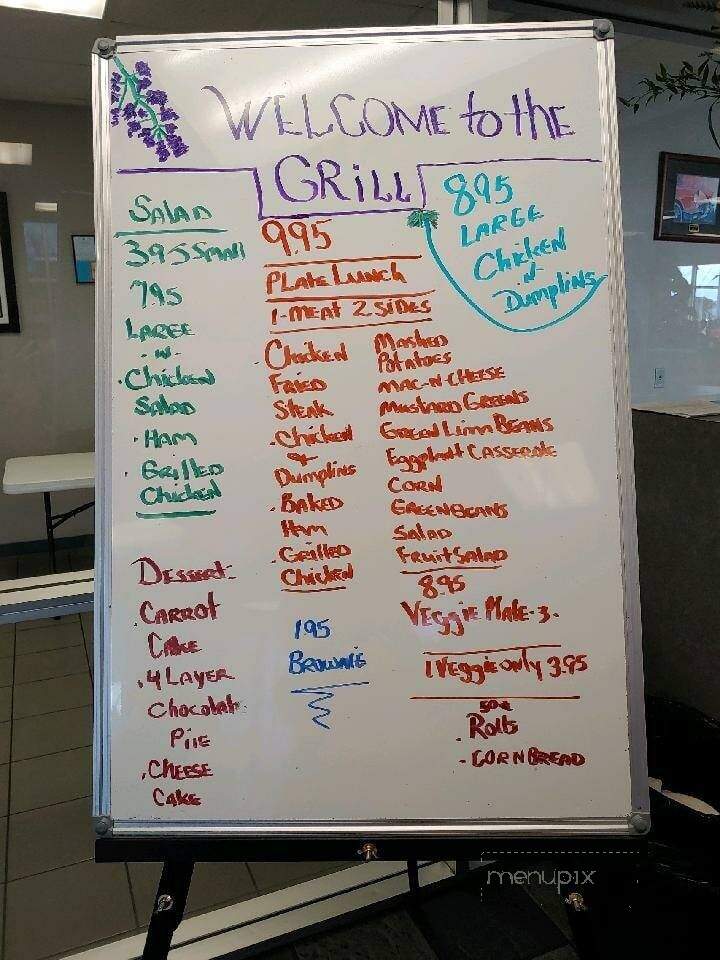 WELCOME to the
GRILL
SALAD
395 Small
795
LARGE
-N-
.Chicken
SALAD
.HAM
.GRilled
Chicken
DESSERT-
.CARROT
CAKE
.4 LAYER
Chocolat
PiiE
.CHEESE
CAKE
9.95
PLATE LUNCH
1-MEAT 2 SIDES
.Chicken
FRIED
STEAK
.Chicken
&
Dumplins
.BAKED
HAM
.GRilled
Chicken
195
BROWNIE
895
LARGE
Chicken
-N-
Dumplins
MASHED
POTATOES
MAC-N-CHEESE
MUSTARD GREENS
GREEN LIMA BEANS
Eggplant CASSEROLE
CORN
GREENBEANS
SALAD
FRUIT SALAD
8.95
VEGGIE PLATE-3.
1 VEGGIE ONLY 3.95
50¢
. Rolls
- CORNBREAD
menupix